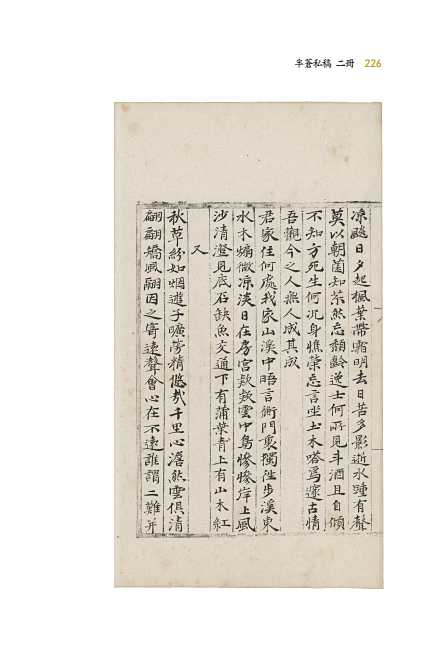 半蒼私稿 二冊 226
凉飈日夕起楓葉帶霜明去日苦多影逝水踵有聲
莫以朝菌知茶然忘頹齡逆士何所見斗酒且自傾
不知方死生何況身憔榮忘言坐土木嗒焉邃古情
吾觀今之人無人成其成
君家住何處我家山溪中晤言衡門裏獨往步溪東
水木媚微凉淡日在房宮欸欸雲中鳥慘慘岸上風
沙清澄見底石缺魚交通下有蒲葉青上有山木紅
又
秋草紛如烟遊子曠蕩精悠哉千里心澹然雲俱清
翩翩矯風翮因之寄遠聲會心在不遠誰謂二難并